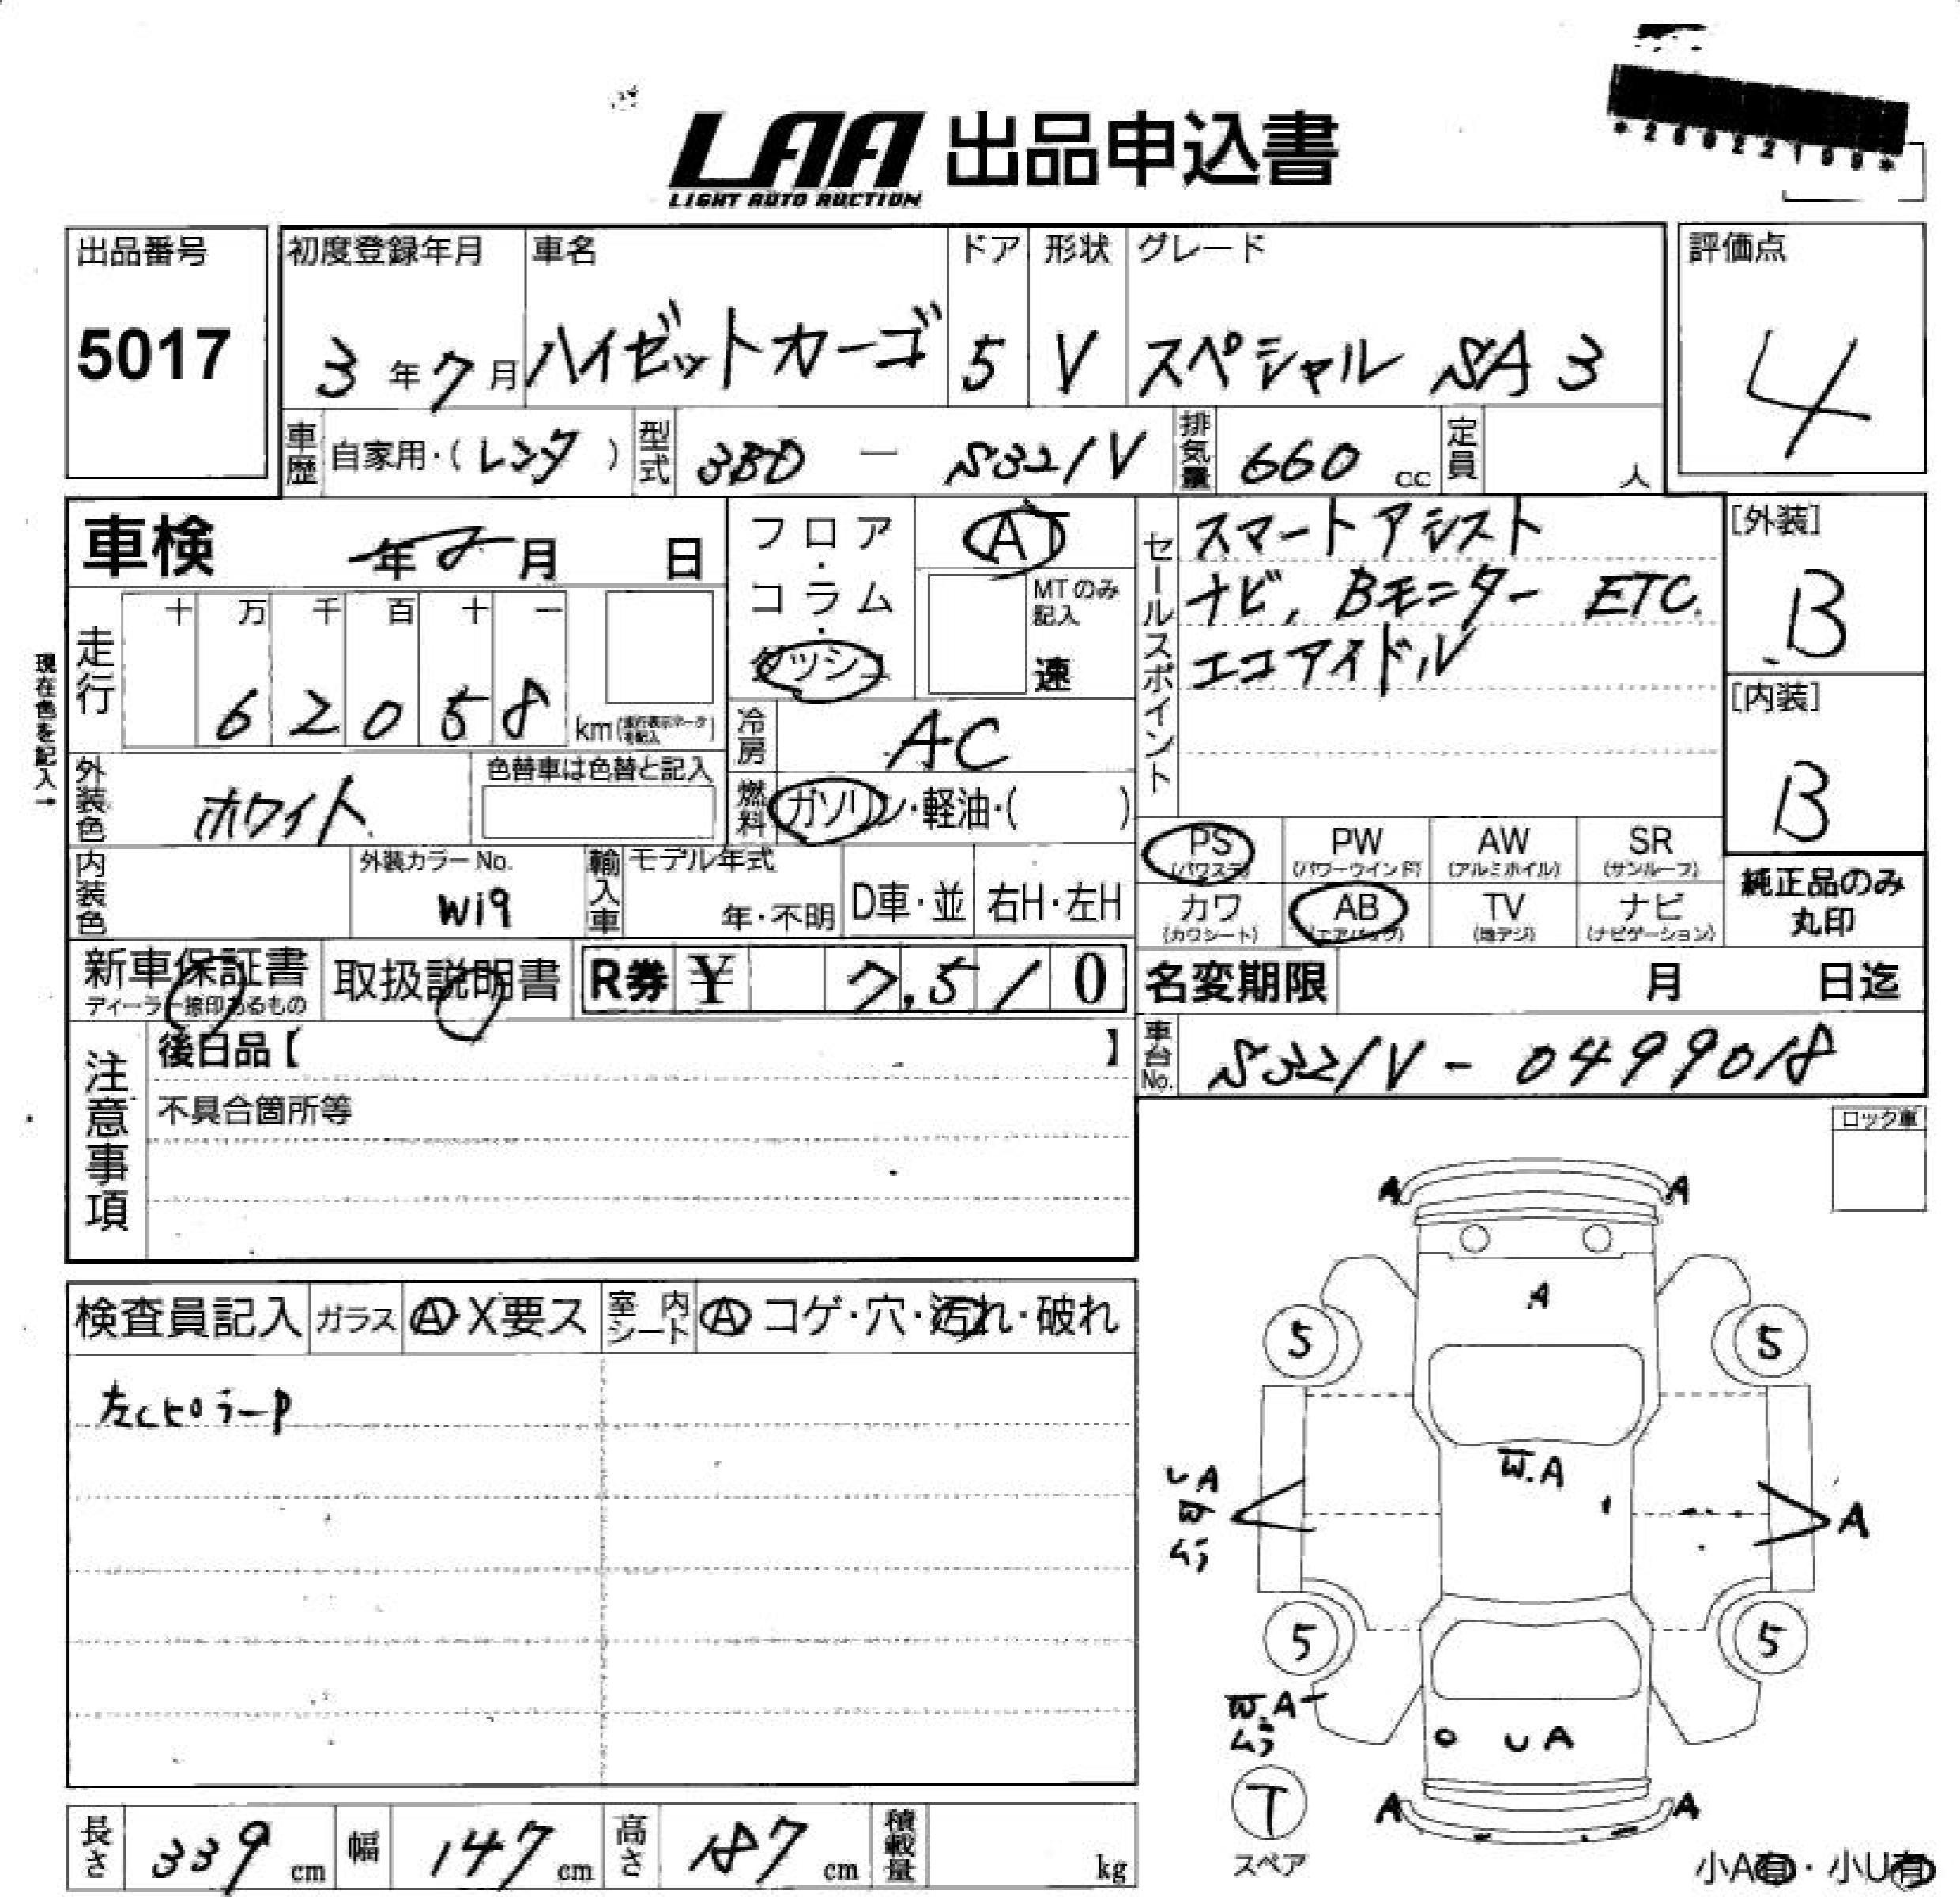 LAA 出品申込書
LIGHT AUTO AUCTION
出品番号
5017
初度登録年月
3年7月
車名
ハイゼットカーゴ
ドア
5
形状
V
グレード
スペシャル SA3
評価点
4
車歴 自家用・(レンタ)
型式 3BD - S321V
排気量 660 cc
定員 人
車検 年 月 日
走行 十 万 千 百 十 一
6 2 0 5 8 km
現在色を記入→
外装色 ホワイト
色替車は色替と記入
内装色
外装カラーNo.
W19
輸入車 モデル年式
年・不明
D車・並
右H・左H
フロア・コラム・ダッシュ
AT
MTのみ記入
速
冷房 AC
燃料 ガソリン・軽油・( )
セールスポイント
スマートアシスト
ナビ, Bモニター ETC.
エコアイドル
[外装]
B
[内装]
B
PS (パワステ)
PW (パワーウインドウ)
AW (アルミホイル)
SR (サンルーフ)
カワ (カワシート)
AB (エアバッグ)
TV (地デジ)
ナビ (ナビゲーション)
純正品のみ
丸印
新車保証書
ディーラー捺印あるもの
取扱説明書
R券 ¥ 7,510
名変期限 月 日迄
車台No. S321V-0499018
注意事項
後日品【 】
不具合箇所等
ロック車
検査員記入
ガラス A・X要ス
室内シート A コゲ・穴・汚れ・破れ
左CピラーP
A A
A
5 5
W.A
UA
W
ムラ
A
5 5
W.A
ムラ
UA
T
スペア
A A
長さ 339 cm
幅 147 cm
高さ 187 cm
積載量 kg
小A有・小U有